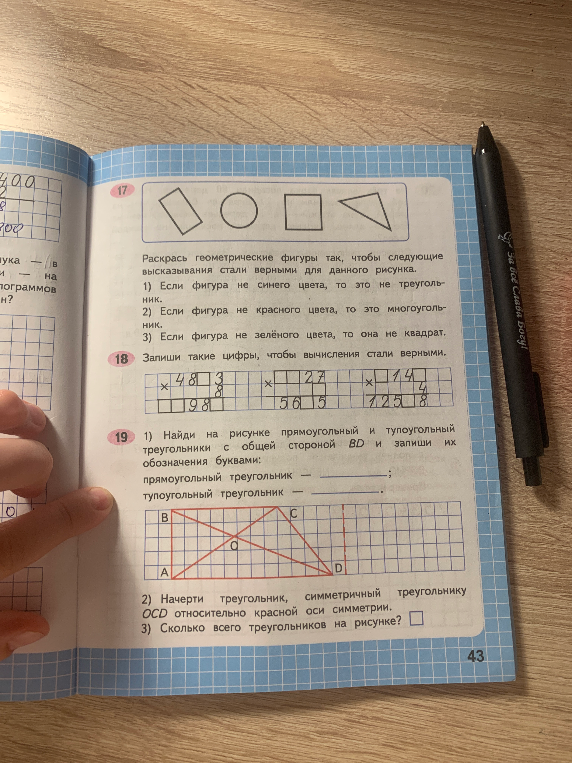 400
ука — в
и — на
лограммов
н?
0
17
Раскрась геометрические фигуры так, чтобы следующие
высказывания стали верными для данного рисунка.
1) Если фигура не синего цвета, то это не треуголь-
ник.
2) Если фигура не красного цвета, то это многоуголь-
ник.
3) Если фигура не зелёного цвета, то она не квадрат.
18 Запиши такие цифры, чтобы вычисления стали верными.
× 48□3 × □□27 × □14□
8 □ 4
□□98□ 56□5 125□8
19 1) Найди на рисунке прямоугольный и тупоугольный
треугольники с общей стороной BD и запиши их
обозначения буквами:
прямоугольный треугольник — ________ ;
тупоугольный треугольник — ________ .
B C
O
A D
2) Начерти треугольник, симметричный треугольнику
OCD относительно красной оси симметрии.
3) Сколько всего треугольников на рисунке? □
43
За всё Слава Богу!